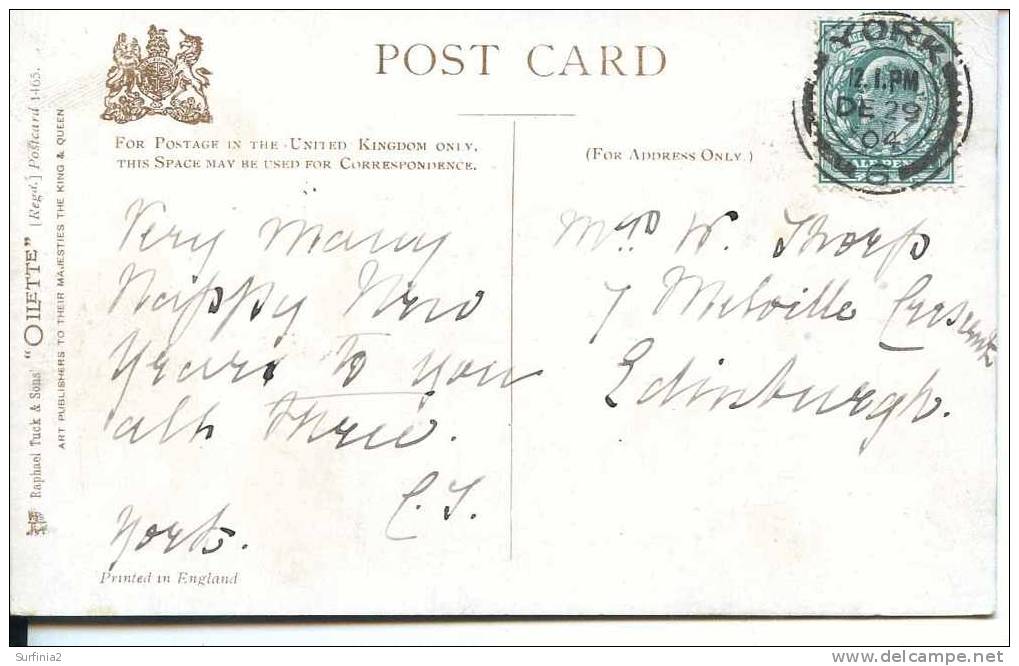 POST CARD
FOR POSTAGE IN THE UNITED KINGDOM ONLY,
THIS SPACE MAY BE USED FOR CORRESPONDENCE.
(FOR ADDRESS ONLY.)
YORK
12.1.PM
DE 29
04
6
Very Many
Happy New
Years to you
all three.
C.T.
York.
Mrs W. Thorp
7 Melville Crescent
Edinburgh.
Printed in England
Raphael Tuck & Sons' "OILETTE" [Regd.] Postcard 1465.
ART PUBLISHERS TO THEIR MAJESTIES THE KING & QUEEN
Surfinia2
www.delcampe.net